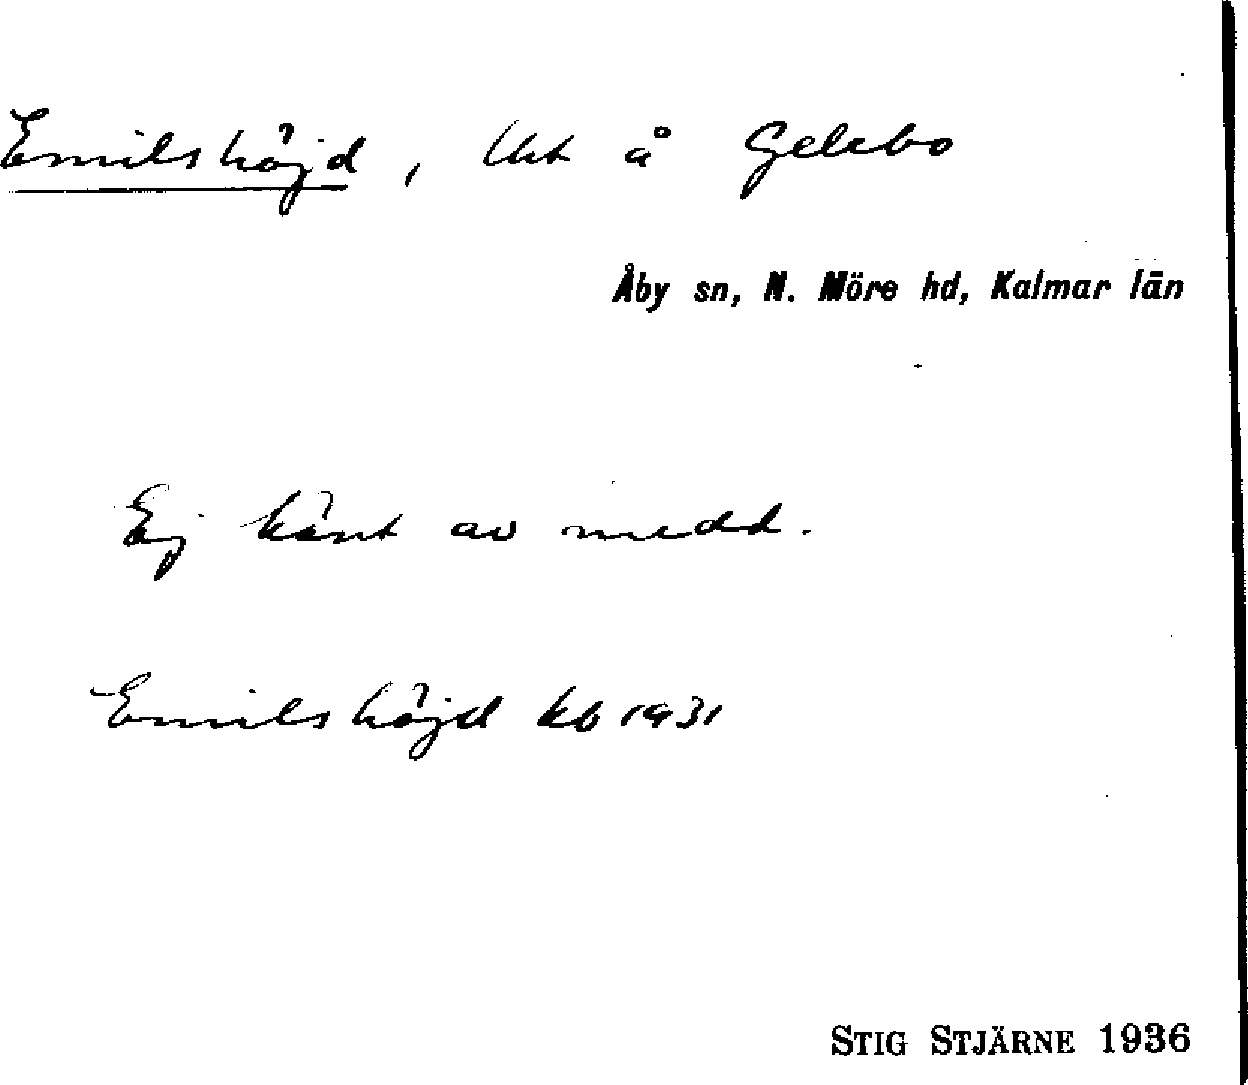 Emilshöjd, lht å Gelebo
Åby sn, N. Möre hd, Kalmar län
Ej känt av medd.
Emilshöjd kb 1931
STIG STJÄRNE 1936